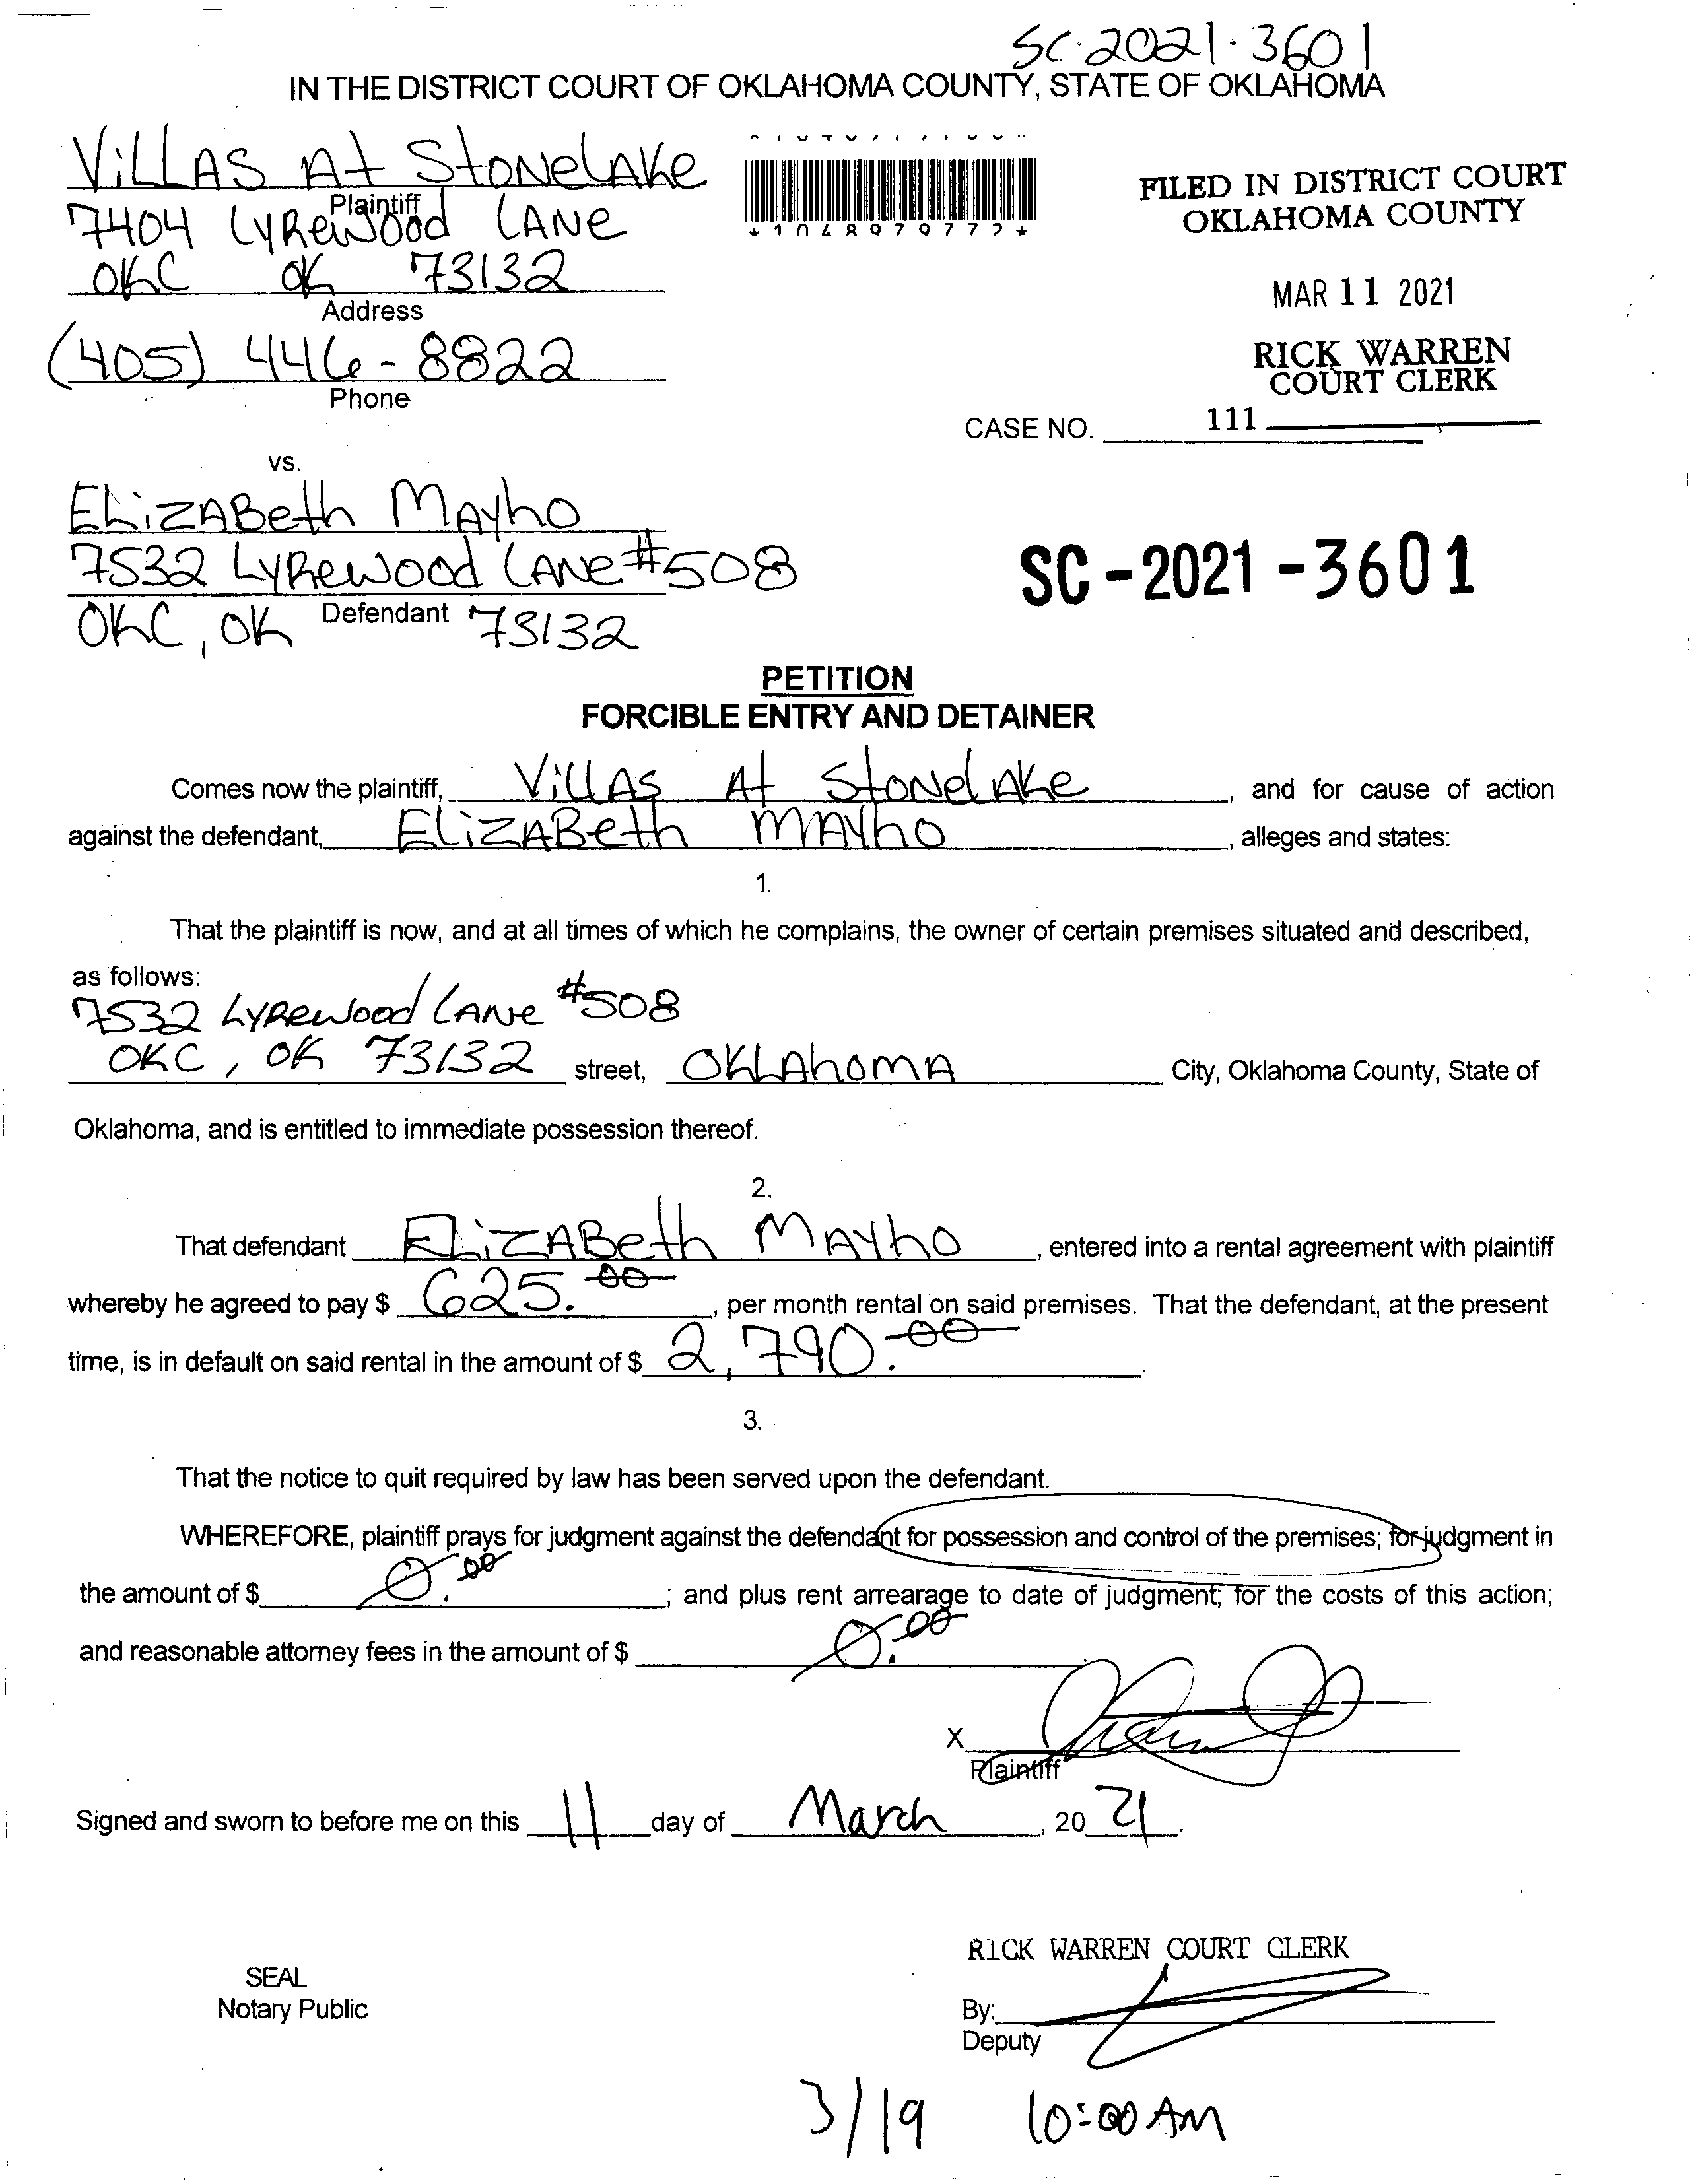 SC-2021-3601
IN THE DISTRICT COURT OF OKLAHOMA COUNTY, STATE OF OKLAHOMA
ViLLAS At StoNelAke
Plaintiff
7404 LyRewood LANe
OKC OK 73132
Address
(405) 446-8822
Phone
*1048979772*
FILED IN DISTRICT COURT
OKLAHOMA COUNTY
MAR 11 2021
RICK WARREN
COURT CLERK
111
CASE NO.
vs.
EliZABeth MAyho
7532 LyRewood LANe #508
Defendant
OKC, OK 73132
SC-2021-3601
PETITION
FORCIBLE ENTRY AND DETAINER
Comes now the plaintiff, ViLLAS At StoNelAke, and for cause of action
against the defendant, EliZABeth MAyho, alleges and states:
1.
That the plaintiff is now, and at all times of which he complains, the owner of certain premises situated and described,
as follows:
7532 LyRewood LANe #508
OKC, OK 73132 street, OKLAhomA City, Oklahoma County, State of
Oklahoma, and is entitled to immediate possession thereof.
2.
That defendant EliZABeth MAyho, entered into a rental agreement with plaintiff
whereby he agreed to pay $ 625.00, per month rental on said premises. That the defendant, at the present
time, is in default on said rental in the amount of $ 2,790.00.
3.
That the notice to quit required by law has been served upon the defendant.
WHEREFORE, plaintiff prays for judgment against the defendant for possession and control of the premises; for judgment in
the amount of $ 0.00; and plus rent arrearage to date of judgment; for the costs of this action;
and reasonable attorney fees in the amount of $ 0.00.
X
Plaintiff
Signed and sworn to before me on this 11 day of March, 20 21.
RICK WARREN COURT CLERK
SEAL
Notary Public
By:
Deputy
3/19 10:00 AM